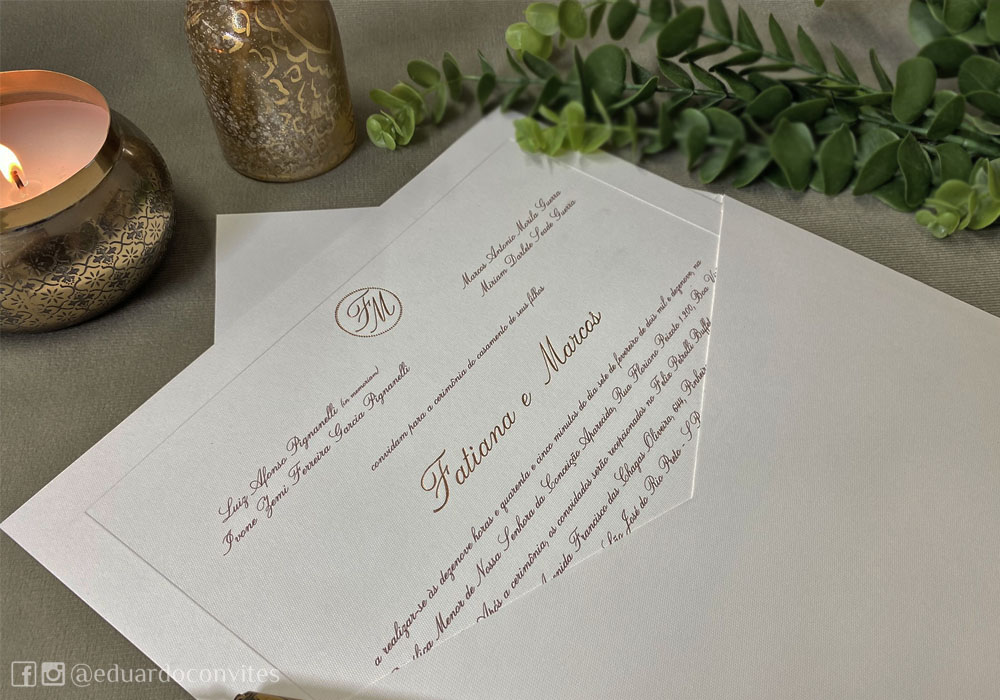 FM
Luiz Afonso Pignanelli (in memorian)
Ivone Zemi Ferreira Garcia Pignanelli
Marcos Antonio Morila Guerra
Miriam Darlete Seade Guerra
convidam para a cerimônia do casamento de seus filhos
Fatiana e Marcos
a realizar-se às dezenove horas e quarenta e cinco minutos do dia sete de fevereiro de dois mil e dezenove, na
Menor de Nossa Senhora da Conceição Aparecida, Rua Floriano Peixoto 1.200, Boa V
Após a cerimônia, os convidados serão recepcionados no Felix Petrolli Buffet
Avenida Francisco das Chagas Oliveira, 644, Pinheir
São José do Rio Preto - SP
@eduardoconvites